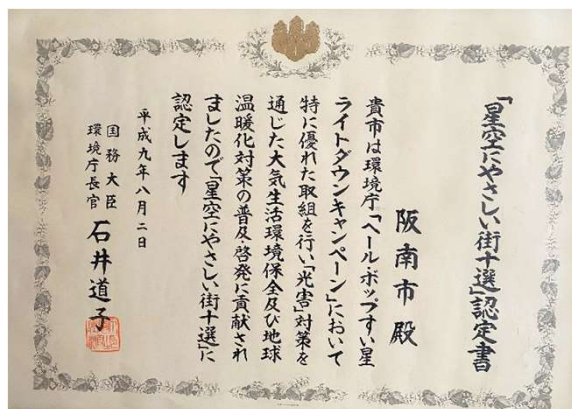 「星空にやさしい街十選」認定書
阪南市殿
貴市は環境庁「ヘール・ボップすい星
ライトダウンキャンペーン」において
特に優れた取組を行い「光害」対策を
通じた大気生活環境保全及び地球
温暖化対策の普及・啓発に貢献され
ましたので「星空にやさしい街十選」に
認定します
平成九年八月二日
国務大臣
環境庁長官
石井道子